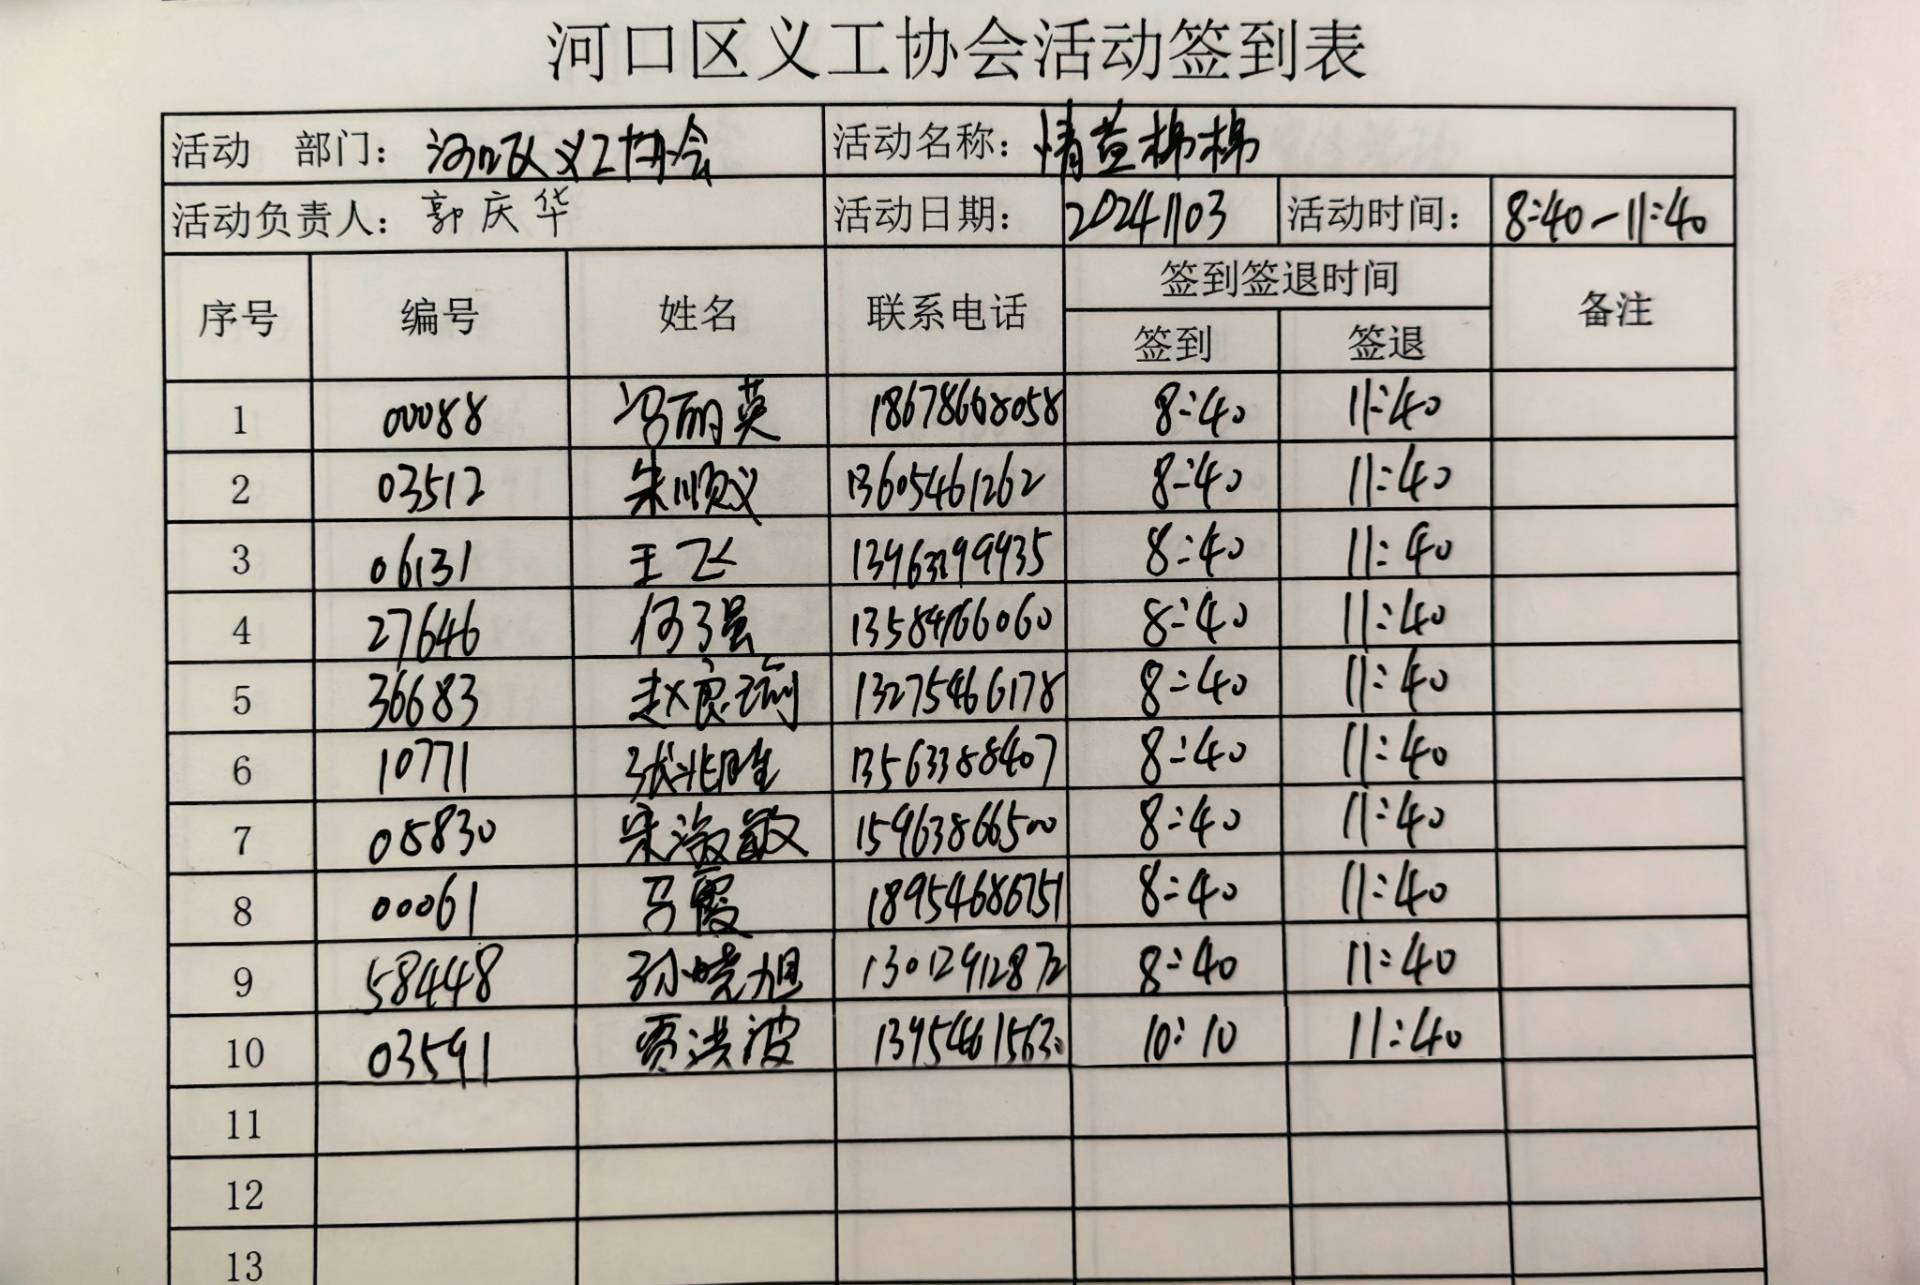 河口区义工协会活动签到表
活动 部门： 河口区义工协会 活动名称： 情益棉棉
活动负责人： 郭庆华 活动日期： 20241103 活动时间： 8:40-11:40
序号 编号 姓名 联系电话 签到签退时间 备注
签到 签退
1 00088 冯丽英 18678668058 8:40 11:40
2 03512 朱顺义 13605461262 8:40 11:40
3 06131 王飞 8:40 11:40
4 27646 8:40 11:40
5 36683 赵良瑜 13275466178 8:40 11:40
6 10771 张兆胜 13563388407 8:40 11:40
7 05830 宋海敏 15963866500 8:40 11:40
8 00061 马霞 18954686751 8:40 11:40
9 58448 孙晓旭 13012912872 8:40 11:40
10 03591 贾洪波 13954615630 10:10 11:40
11
12
13